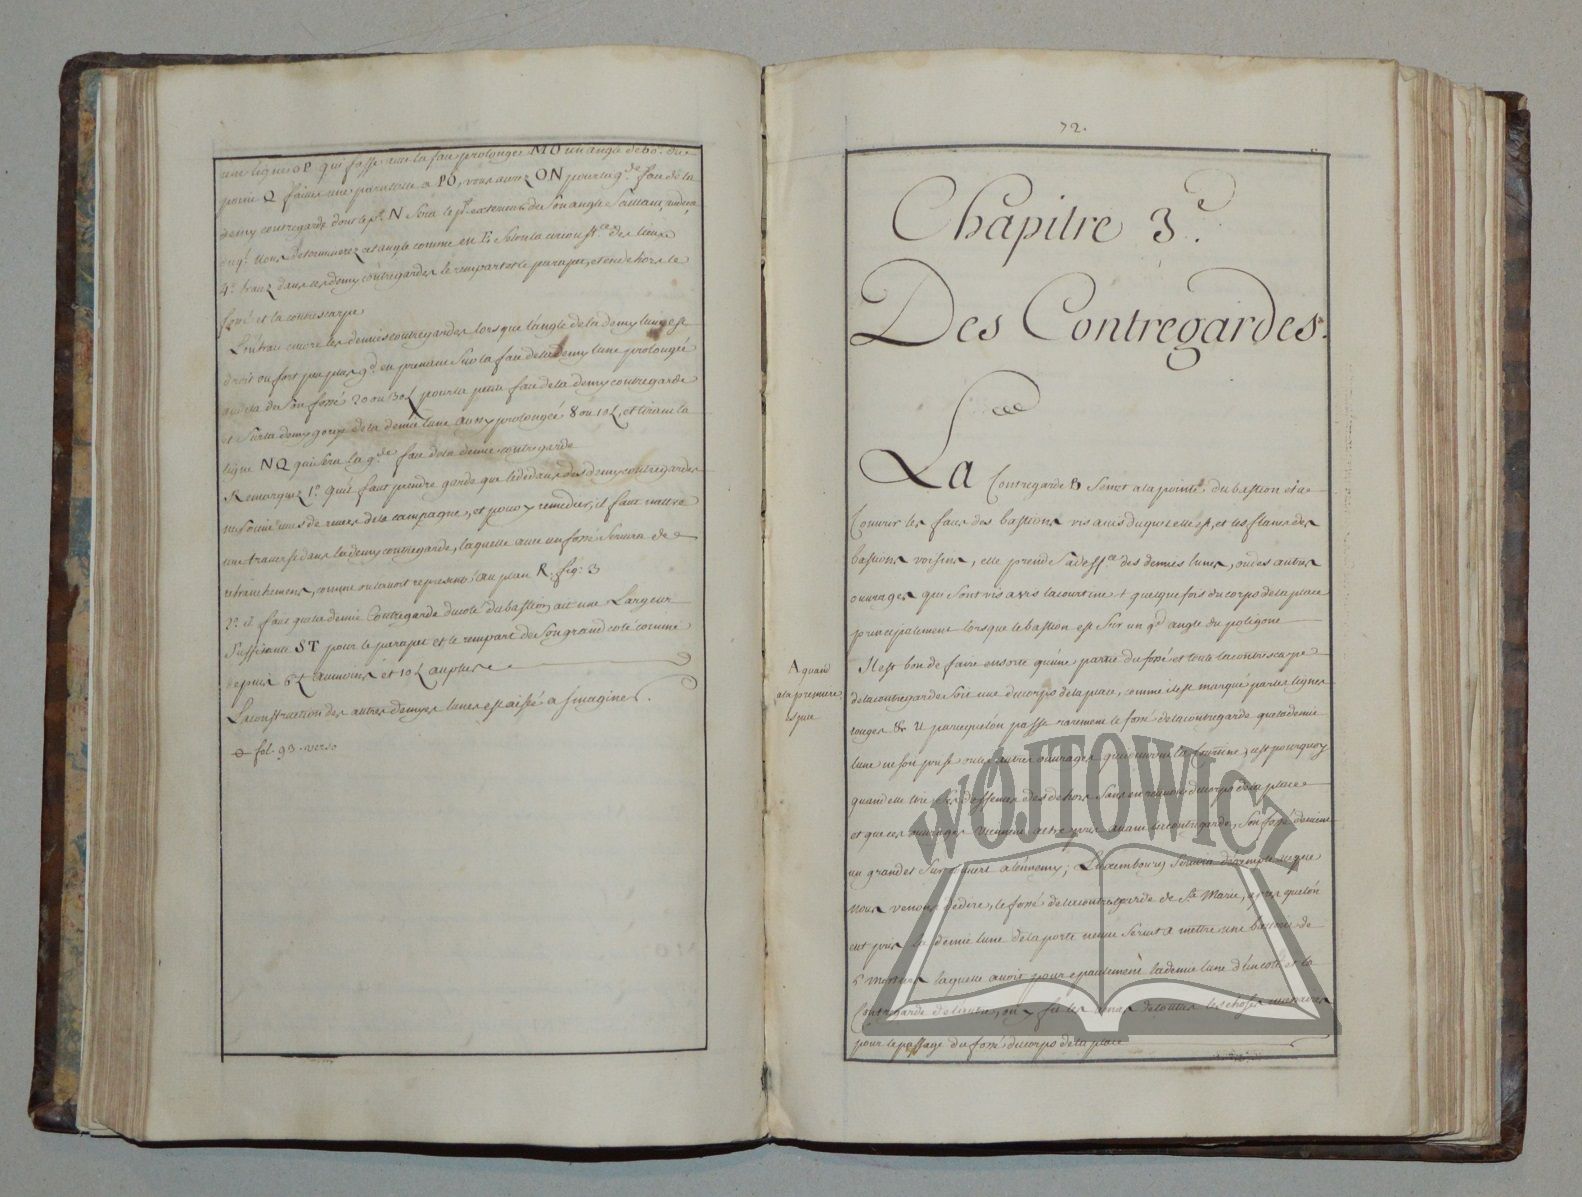 une ligne OP qui fasse avec la face prolongée MO un angle de 60.d du
point Q faites une paralelle a PO, vous aurez ON pour la gde face de la
demy contregarde dont le pt N sera le pt exterieur de son angle Saillant,
Vous determinerez cet angle comme en selon la des lieux
4.° tracez dans ces demy contregardes le rempart et le parapet, et en dehors le
fossé et la contrescarpe
L'on trace encore les demies contregardes lors que l'angle de la demy lune est
droit ou fort peu plus gd en prenant Sur la face de la demy lune prolongée
au dela du Son fossé 20 ou 30 L pour la petite face de la demy contregarde
et Sur la demy gorge de la demie lune aussy prolongée 8 ou 10 L, et tirant la
ligne NQ qui Sera la gde face de la demie contregarde
Remarquez 1.° qu'il faut prendre garde que le dedans des demy contregardes
ne Soient veues de revers de la campagne, et pour y remedier, il faut mettre
une traverse dans la demy contregarde, laquelle avec un fossé Servira de
retranchement, comme on le voit representé au plan R. fig: 3
2.° il faut que la demie Contregarde du coté du bastion ait une Largeur
Suffisante ST pour le parapet et le rempart de Son grand coté comme
depuis 6 L au moins et 10 L au plus
La construction des autres demyes lunes est aisée a Imaginer.
fol. 93. verso
72.
Chapitre 3e.
Des Contregardes.
La Contregarde B Sert a la pointe du bastion et a
Couvrir les faces des bastions vis avis duquel elle est, et les flancs des
bastions voisins, elle prend Sa deffce des demies lunes, ou des autres
ouvrages qui Sont vis avis la courtine et quelque fois du corps de la place
principalement lorsque le bastion est Sur un gd angle du poligone
Il est bon de faire ensorte qu'une partie du fossé et toute la contrescarpe
A quand
a la premiere
espece
de la contregarde Soit veue du corps de la place, comme il est marqué par les lignes
rouges & parceque l'on passe rarement le fossé de la contregarde que la demie
lune ne Soit prise ou les autres ouvrages qui couvrent la courtine, c'est pourquoy
quand elle tire Ses deffences des dehors Sans en recevoir du corps de la place
et que ces ouvrages viennent a etre pris avant la contregarde, Son fossé devient
un grand et Sur couvert a l'ennemy; Luxembourg Servira d'exemple a ce que
Nous venons de dire, le fossé de la contregarde de Ste Marie, apres que l'on
eut pris la demie lune de la porte neuve Servit a mettre une batterie de
5 Mortiers laquelle avoit pour epaulement la demie lune d'un coté et la
Contregarde de l'autre, on y fit les amas de toutes les choses necessaires
pour le passage du fossé du corps de la place
WOJTOWICZ